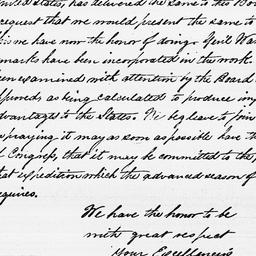 nited States, has delivered the same to the Boa
request that we would present the same to
his we have now the honor of doing. Genl Wa
marks have been incorporated in the work.
een examined with attention by the Board
pproved as being calculated to produce im
dvantages to the States. We beg leave to join
praying it may as soon as possible have th
f Congress, that it may be committed to the
hat expedition which the advanced season of
equires.
We have the honor to be
with great respect
Your Excellency's